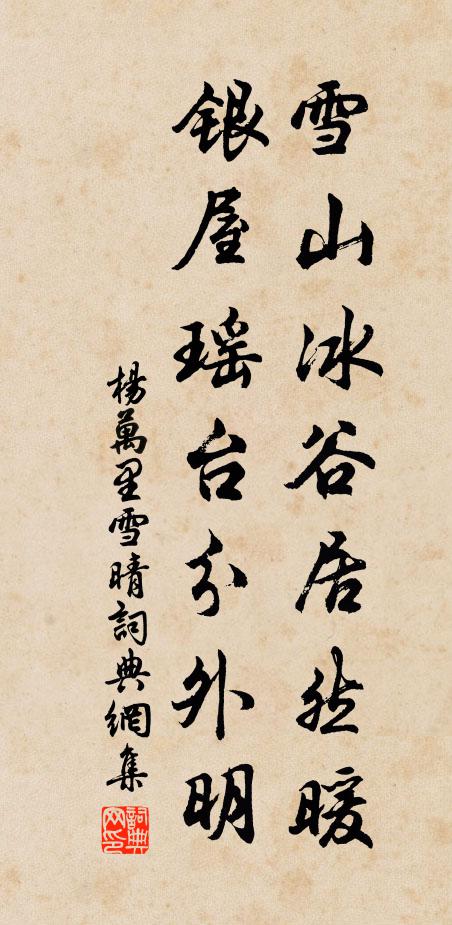 雪山冰谷居然暖
銀屋瑶台分外明
楊萬里雪晴詞典網集
詞典
网印